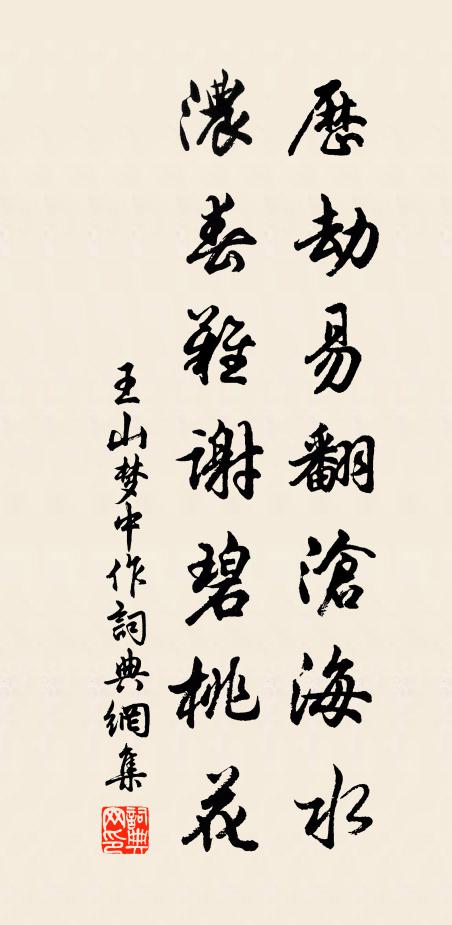 歷劫易翻滄海水
濃春難謝碧桃花
王山梦中作詞典網集
詞典
网印